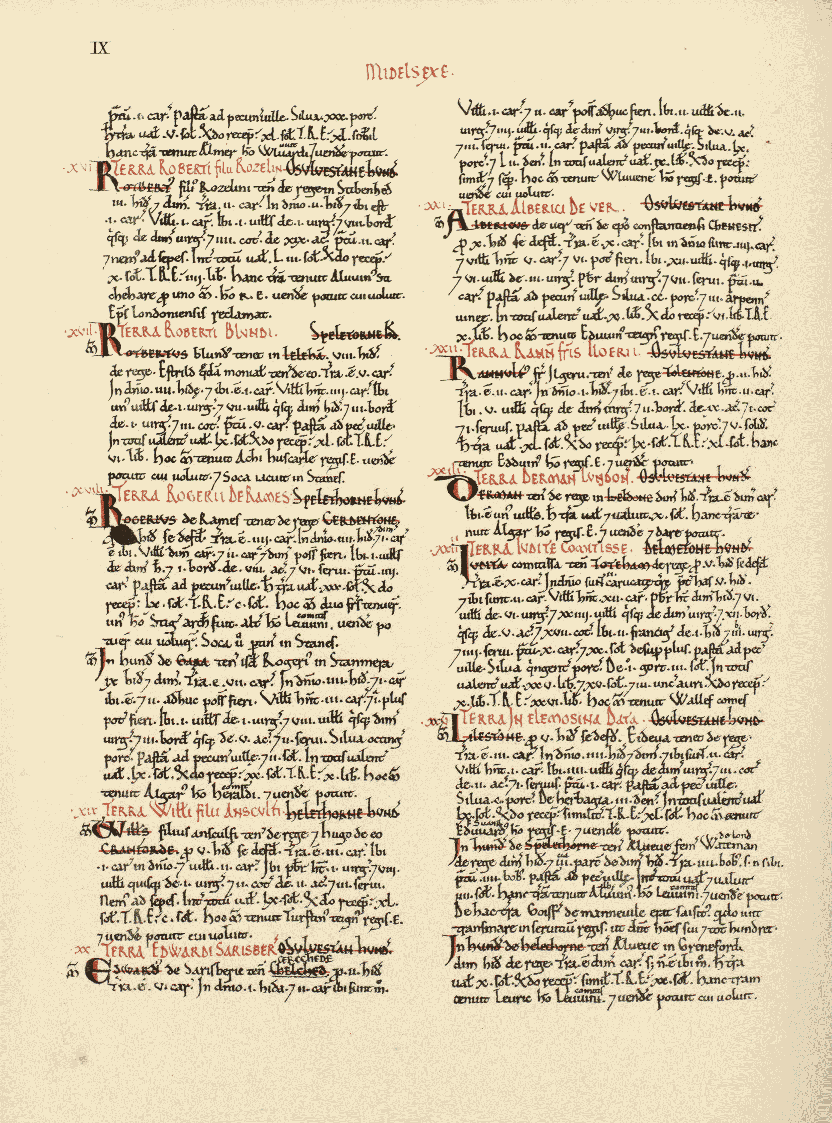 IX
MIDELSEXE.
p̃tū .i. car̃. Pastā ad pecun̄ uillæ. Silua .xxx. porc̃.
H̃ t̃ra ual̃ .v. sol̃. X̃do recep̃: xl. sol̃. T.R.E: xl. sol̃
hanc t̃rā tenuit Almer hō Wluuardi 7 uende potuit.
.xvi. TERRA ROBERTI filij ROZELIN. OSVLVESTANE HUND.
ROTBERT' fili' Rozelini ten̄ de rege in Stibenhed
iii. hid' 7 dim̄. T̃ra .ii. car̃. In dn̄io .ii. hid' 7 ibi est
.i. car̃. Uill̄i .i. car̃. Ibi .i. uill̄s de .i. uirg̃ 7 viii. bord̄
q̄sq; de dim̄ uirg̃ 7 iiii. cot̃ de xix. ac̃. p̃tū .ii. car̃.
7 nem' ad sepes. Int̃ totū ual̃ .L iii. sol̃. X̃do recep̃:
x. sol̃. T.R.E: iiii. lib. hanc t̃rā tenuit Aluuin' Sti
chehare p̱ uno m̃. hō R.E. uende potuit cui uoluit.
Ep̄s Londoniensis reclamat.
.xvii. TERRA ROBERTI BLUNDI. SPELETORNE H̃D.
m̃ ROTBERTVS blund' tenet in Leleham .viii. hid'
de rege. Estrild q̄dā monial' ten' de eo. T̃ra .ē. v. car̃.
In dn̄io .iiii. hidę. 7 ibi .ē. i. car̃. Uill̄i hn̄t .iii. car̃. Ibi
un' uill̄s de .i. uirg̃ 7 vii. uill̄i q̄sq; dim̄ hid' 7 iii. bord̄
de .i. uirg̃ 7 iii. cot̃. p̃tū .v. car̃. Pastā ad pecun̄ uillæ.
In totis ualent' ual̃ .lx. sol̃. X̃do recep̃: xl. sol̃. T.R.E:
vi. lib. Hoc m̃ tenuit Achi huscarle regis E. uende
potuit cui uoluit. 7 Soca iacuit in Stanes.
.xviii. TERRA ROGERII DE RAMES. SPELETHORNE HUND
m̃ ROGERIVS de Rames tenet de rege CERDENTONE.
hid' se defd̄. T̃ra .ē. iiii. car̃. In dn̄io .iii. hid' 7 ii. car̃
ē ibi. Uill̄i dim̄ car̃. 7 ii. car̃ 7 dim̄ poss' fieri. Ibi .i. uill̄s
de dim̄ h̃. 7 .i. bord̄ de .viii. ac̃. 7 vi. serui. p̃tū .iiii.
car̃. Pastā ad pecun̄ uillæ. H̃ t̃ra ual̃ .xxx. sol̃. X̃do
recep̃: lx. sol̃. T.R.E: c. sol̃. Hoc m̃ duo fr̄s tenuer̃.
un' hō Stig' arch' fuit. alt̃ hō Leuuini comitis. uende po
tuer' cui uoluer'. Soca ū p̱tin' in Stanes.
m̃ In hund' de GARA ten' isd̄ Rogeri' in Stanmera
ix. hid' 7 dim̄. T̃ra .ē. vii. car̃. In dn̄io .iiii. hid' 7 .i. car̃
ibi .ē. 7 ii. adhuc poss' fieri. Uill̄i hn̄t .iii. car̃. 7 .i. plus
pot' fieri. Ibi .i. uill̄s de .i. uirg̃ 7 viii. uill̄i q̄sq; dim̄
uirg̃ 7 iii. bord̄ q̄sq; de .v. ac̃. 7 ii. serui. Silua octing̃
porc̃. Pastā ad pecun̄ uillæ. 7 ii. sol̃. In totis ualent'
ual̃ .lx. sol̃. X̃do recep̃: xx. sol̃. T.R.E: x. lib. Hoc m̃
tenuit Algar hō heraldi comitis. 7 uende potuit.
.xix. TERRA WILLI filij ANSCULFI. HELETHORNE HUND.
m̃ WILL'S filius ansculfi ten' de rege 7 hugo de eo
CRANFORDE. p̱ v. hid' se defd̄. T̃ra .ē. iii. car̃. Ibi
.i. car̃ in dn̄io. 7 uill̄i .ii. car̃. Ibi pbr̃ hr̄: i. uirg̃ 7 viii.
uill̄i quisq; de .i. uirg̃. 7 ii. cot̃ de .ii. ac̃. 7 iii. serui.
Nem' ad sepes. In totis ualent' ual̃ .lx. sol̃. X̃do recep̃: xl.
sol̃. T.R.E: c. sol̃. Hoc m̃ tenuit Turstin' teign' regis E.
7 uende potuit cui uoluit.
.xx. TERRA EDWARDI SARISBER' OSVLVESTAN HUND.
CERCEHEDE
m̃ EDWARD' de Sarisberie ten' Chelched. p̱ .ii. hid'
T̃ra .ē. v. car̃. In dn̄io .i. hida. 7 ii. car̃ ibi sunt m̄.
Uill̄i .i. car̃. 7 ii. car̃ poss' adhuc fieri. Ibi .ii. uill̄i de .ii.
uirg̃. 7 iiii. uill̄i q̄sq; de dim̄ uirg̃. 7 iii. bord̄. q̄sq; de .v. ac̃.
7 iii. serui. p̃tū .ii. car̃. Pastā ad pecun̄ uillæ. Silua .lx.
porc̃. 7 L ii. den̄. In totis ualent' ual̃ .ix. lib. X̃do recep̃:
simil̃. 7 sep̃. Hoc m̃ tenuit Wluuene hō regis E. potuit
uende cui uoluit.
.xxi. TERRA ALBERICI DE VER. OSVLVESTANE HUND.
m̃ ALBERICVS de uer ten' de ep̄o constantiensi CHENESIT.
p̱ x. hid' se defd̄. T̃ra .ē. x. car̃. Ibi in dn̄io sunt .iiii. car̃.
7 uill̄i hn̄t .v. car̃. 7 vi. pot' fieri. Ibi .xii. uill̄i q̄sq; .i. uirg̃.
7 vi. uill̄i de .iii. uirg̃. Pbr̃ dim̄ uirg̃ 7 vii. serui. p̃tū .ii.
car̃. Pastā ad pecun̄ uillæ. Silua .cc. porc̃. 7 iii. arpenn̄
uineę. In totis ualent' ual̃ .x. lib. X̃do recep̃: vi. lib. T.R.E:
x. lib. Hoc m̃ tenuit Eduuin' teign' regis E. 7 uende potuit.
.xxii. TERRA RANN' fr̄is ILGERII. OSVLVESTANE HUND.
RANNVLF' fr̄ Ilgeri ten' de rege TOLENTONE. p̱ .ii. hid'
T̃ra .ē. ii. car̃. In dn̄io .i. hid' 7 ibi .ē. i. car̃. Uill̄i hn̄t .ii. car̃.
Ibi .v. uill̄i q̄sq; de dim̄ uirg̃ 7 ii. bord̄ de .ix. ac̃. 7 i. cot̃
7 i. seruus. Pastā ad pec' uillæ. Silua .lx. porc̃. 7 v. solid.
H̃ t̃ra ual̃ .xl. sol̃. X̃do recep̃: lx. sol̃. T.R.E: xl. sol̃. hanc
tenuit Edduin' hō regis E. 7 uende potuit.
.xxiii. TERRA DERMAN LUNDON'. OSVLVESTANE HUND.
DERMAN ten' de rege in Iseldone dim̄ hid'. T̃ra .ē dim̄ car̃.
Ibi .ē un' uill̄s. H̃ t̃ra ual̃ 7 ualuit .x. sol̃. Hanc t̃rā te
nuit Algar hō regis E. 7 uende 7 dare potuit.
.xxiiii. TERRA JUDITE COMITISSE. DELMETONE HUND.
m̃ IVDITA comitissa ten' TOTEHAM de rege. p̱ .v. hid' se defd̄
T̃ra .ē. x. car̃. In dn̄io sunt carucatę t̃rę. p̱ter has .v. hid'.
7 ibi sunt .ii. car̃. Uill̄i hn̄t .xii. car̃. Pbr̃ ht̃ dim̄ hid' 7 vi.
uill̄i de .vi. uirg̃. 7 xxiiii. uill̄i q̄sq; de dim̄ uirg̃ 7 xii. bord̄.
q̄sq; de .v. ac̃. 7 xvii. cot̃. Ibi .ii. francig' de .i. hid' 7 iii. uirg̃.
7 iiii. serui. p̃tū .x. car̃. 7 xx. sol̃ desuper plus. pastā ad pec'
uillæ. Silua q̄ngent' porc̃. De .i. gort .iii. sol̃. In totis
ualent' ual̃ .xxv. lib. 7 xv. sol̃. 7 iii. unc' auri. X̃do recep̃:
x. lib. T.R.E: xxvi. lib. Hoc m̃ tenuit Wallef comes.
.xxv. TERRA IN ELEMOSINA DATA. OSVLVESTANE HUND.
m̃ LILESTONE. p̱ v. hid' se defd̄. Eideua tenet de rege.
T̃ra .ē. iii. car̃. In dn̄io .iiii. hid' 7 dim̄. 7 ibi sunt .ii. car̃.
Uill̄i hn̄t .i. car̃. Ibi .iiii. uill̄i q̄sq; de dim̄ uirg̃. 7 iii. cot̃
de .ii. ac̃. 7 i. seruus. p̃tū .i. car̃. Pastā ad pec' uillæ.
Silua .c. porc̃. De herbagia .iii. den̄. In totis ualent' ual̃
lx. sol̃. X̃do recep̃: similit̃. T.R.E: xl. sol̃. Hoc m̃ tenuit
Eduuard' hō regis E. 7 uende potuit.
In hund' de Spelethorne ten' Alueue fem' Wateman de lond'
de rege dim̄ hid'. 7 iii. part̃ de dim̄ hid'. T̃ra .iiii. bob'. s' n̄ sibi.
p̃tū .iiii. bob'. pastā ad pec' uillæ. Int̃ totū ual̃ 7 ualuit
viii. sol̃. Hanc t̃rā tenuit Aluuin' hō Leuuini comitis. 7 uende potuit.
De hac t̃ra Goisf' de manneuile erat saisit' q̄do iuit
transmare in seruitiū regis. ut dn̄t hōes sui 7 tot' hundret.
In hund' de helethorne ten' Alueue in Greneford'.
dim̄ hid' de rege. T̃ra .ē dim̄ car̃. s; n̄ ē ibi m̄. H̃ t̃ra
ual̃ .x. sol̃. X̃do recep̃: simil̃. T.R.E: xx. sol̃. hanc terram
tenuit Leuric hō Leuuini comitis. 7 uende potuit cui uoluit.